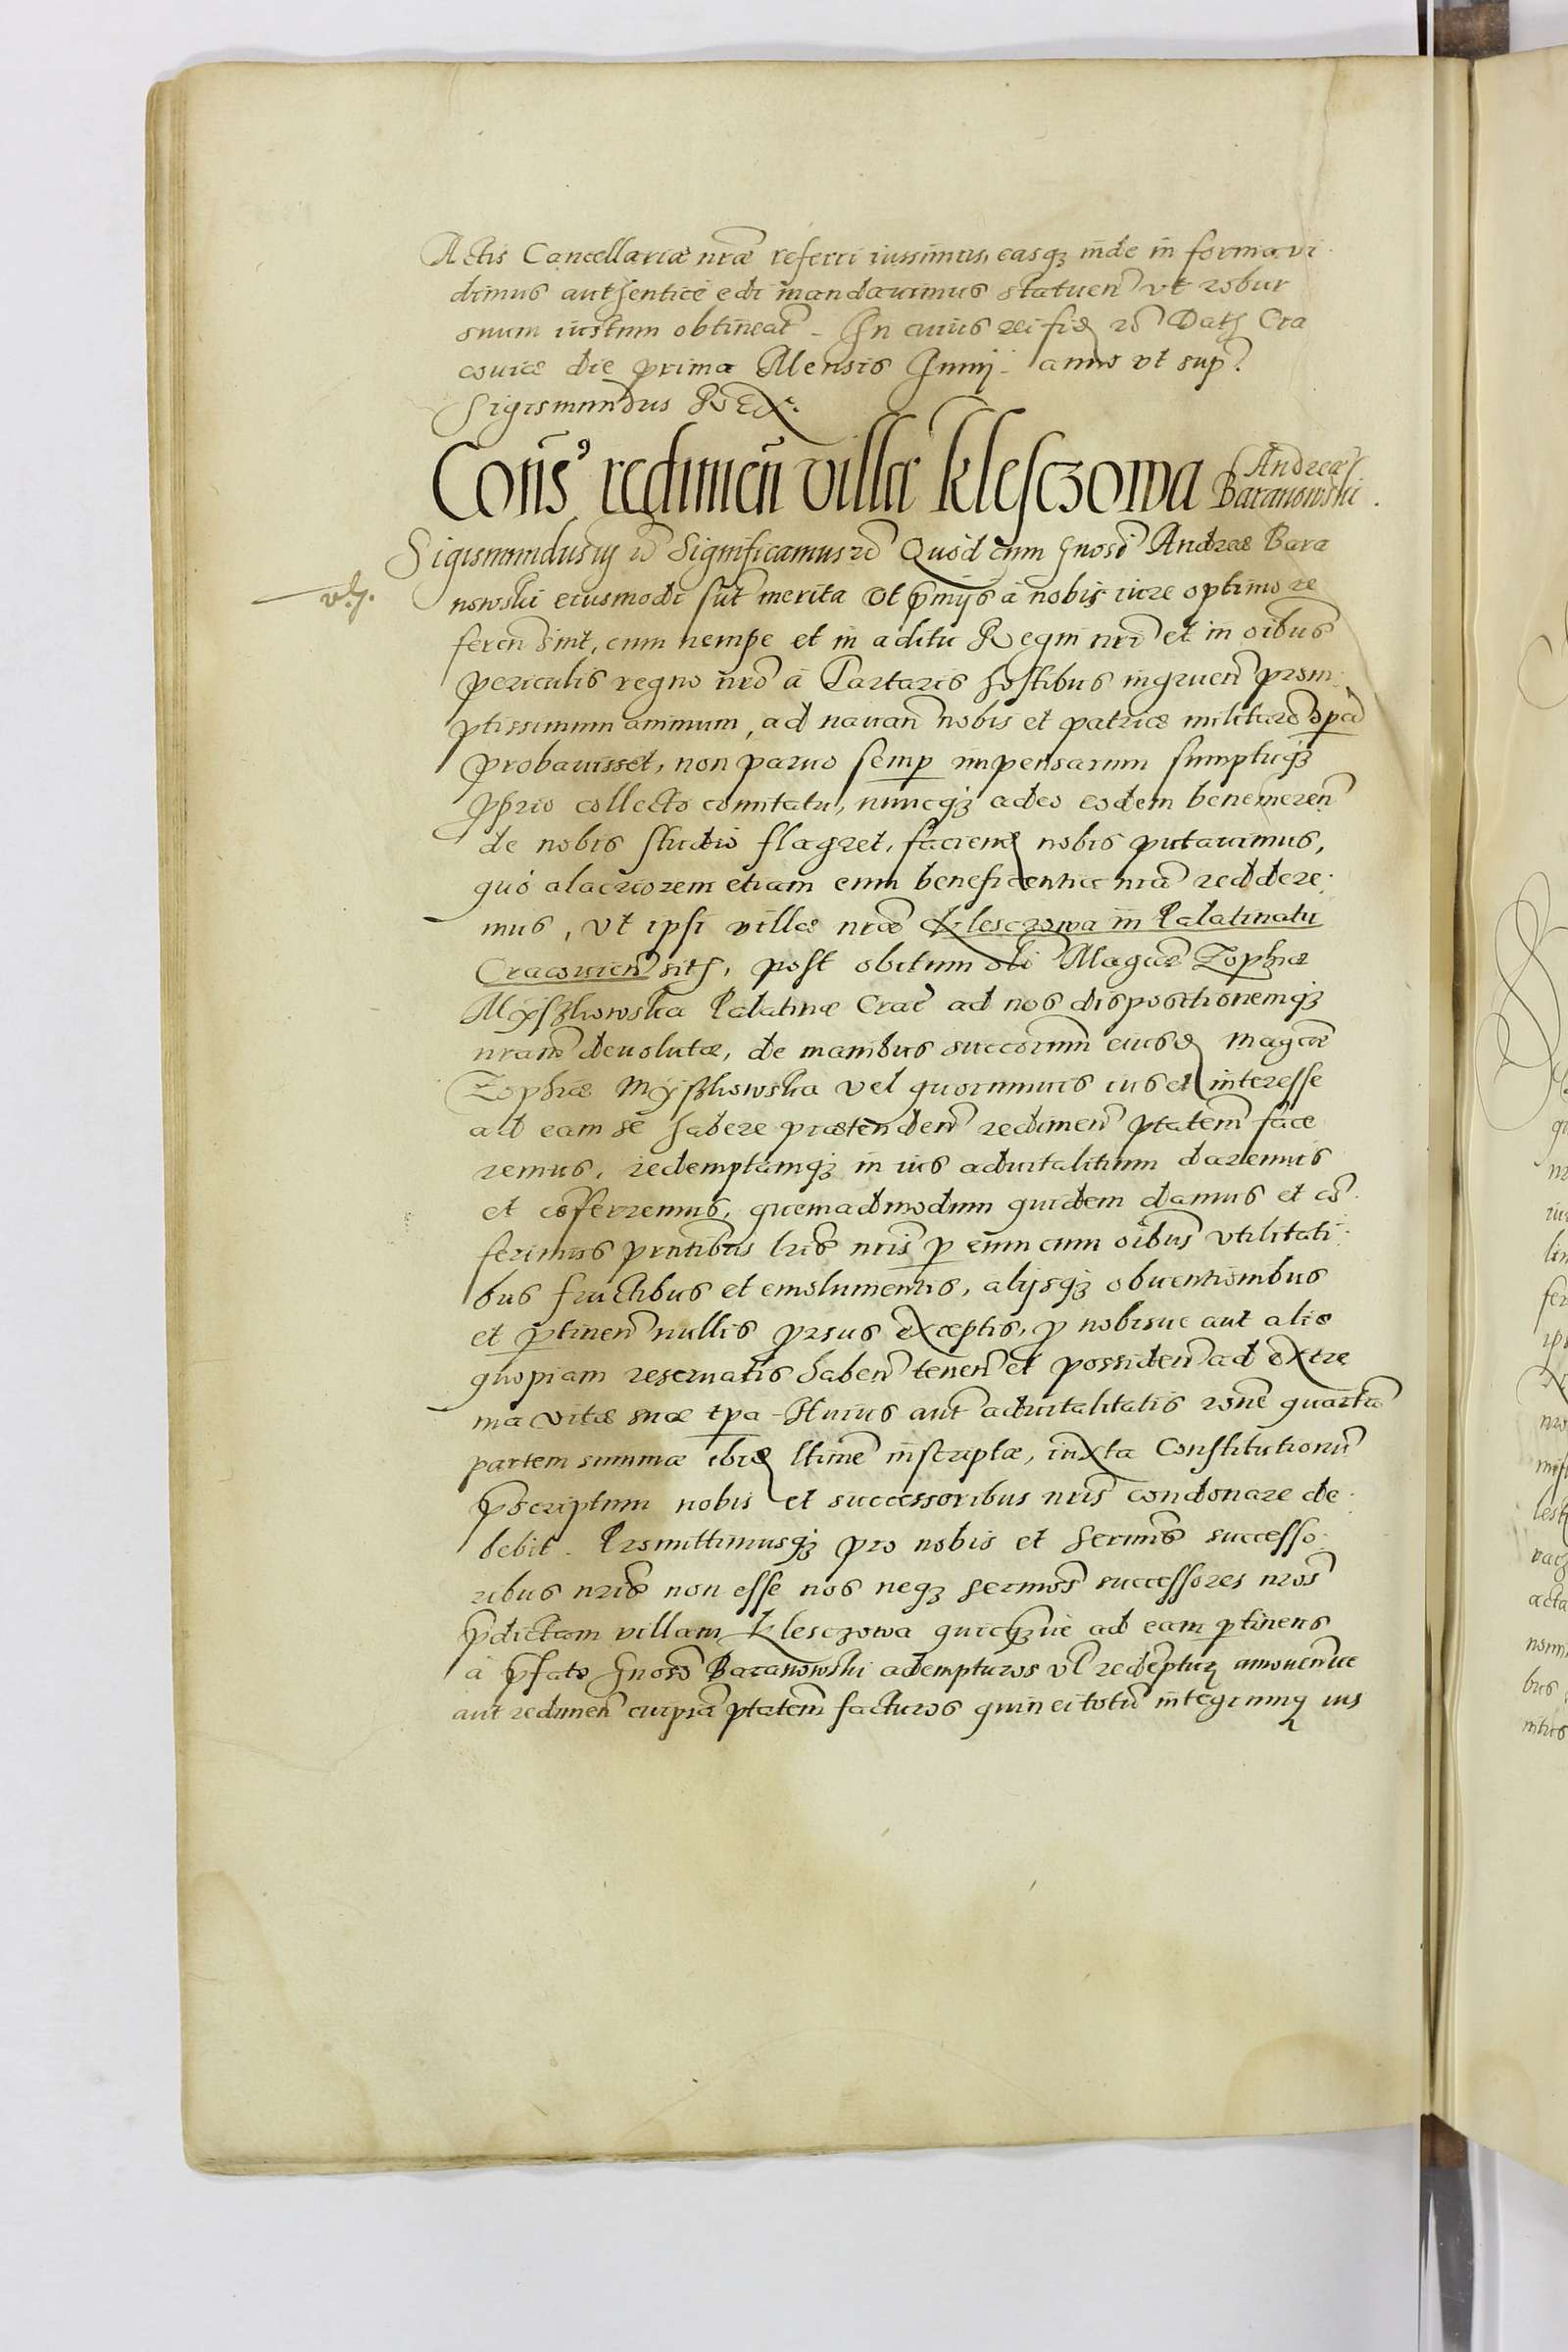 Actis Cancellariæ nræ referri iussimus, easq; inde in forma vi
dimus authentice edi mandauimus statuen vt robur
suum iustum obtineat. In cuius rei fid. rc Dat Cra
couiæ die prima Mensis Junij. anno vt sup.
Sigismundus Rex.
Cons redimen villæ Klesczowa Andreæ
Baranowski.
Sigismundus iij rc Significamus rc Quod cum gnosi Andreæ Bara
nowski eiusmodi sint merita vt pmijs à nobis iure optimo re
feren sint, cum nempe et in aditu Regni nri et in oibus
periculis regno nro à Tartaris hostibus ingruen prom
ptissimum animum, ad nauan nobis et patriæ militare opa
probauisset, non paruo semp impensarum sumptuq;
pprio collecto comitatu, nuncq; adeo eodem benemeren
de nobis studio flagret, faciend nobis putauimus,
quò alacriorem etiam eum beneficentia nra reddere:
mus, vt ipsi villæ nræ Klesczowa in Palatinatu
Cracouien sit, post obitum oli Magcæ Zophiæ
Myszkowska Palatinæ Crac ad nos dispositionemq;
nram deuolutæ, de manibus succorum eiusd Magcæ
Zophiæ Myszkowska vel quorumuis ius et interesse
ad eam se habere prætenden redimen ptatem face
remus, redemptamq; in ius aduitalitium daremus
et coferremus, quemadmodum quidem damus et co
ferimus pntibus lris nris p eum cum oibus vtilitati
bus fructibus et emolumentis, alijsq; obuentionibus
et ptinen nullis prsus exceptis, p nobisue aut alio
quopiam reseruatis haben tenen et possiden ad extre
ma vitæ suæ tpa. Huius aut aduitalitatis rone quarta
partem summæ ibid ltime inscriptæ, iuxta Constitutionu
pscriptum nobis et successoribus nris condonare de
bebit. Promittimusq; pro nobis et sermis successo
ribus nris non esse nos neq; sermos successores nros
pdictam villam Klesczowa quicq;ue ad eam ptinens
à pfato gnoso Baranowski adempturos vl redeptur amouenue
aut redimen cuipia ptatem facturos quin ei totu integrumq ius